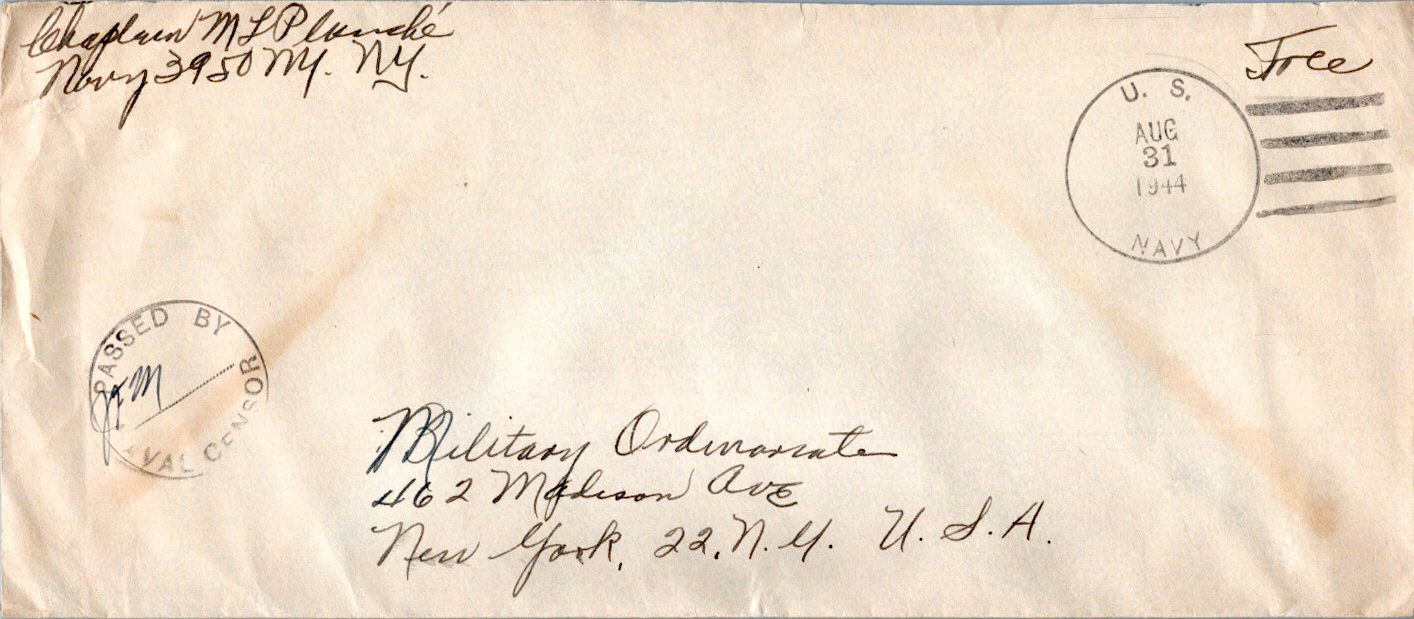 Chaplain M L Planché
Navy 3950 NY. NY.
Free
U. S.
AUG
31
1944
NAVY
PASSED BY
NAVAL CENSOR
Military Ordinariate
462 Madison Ave
New York, 22, N. Y. U. S. A.